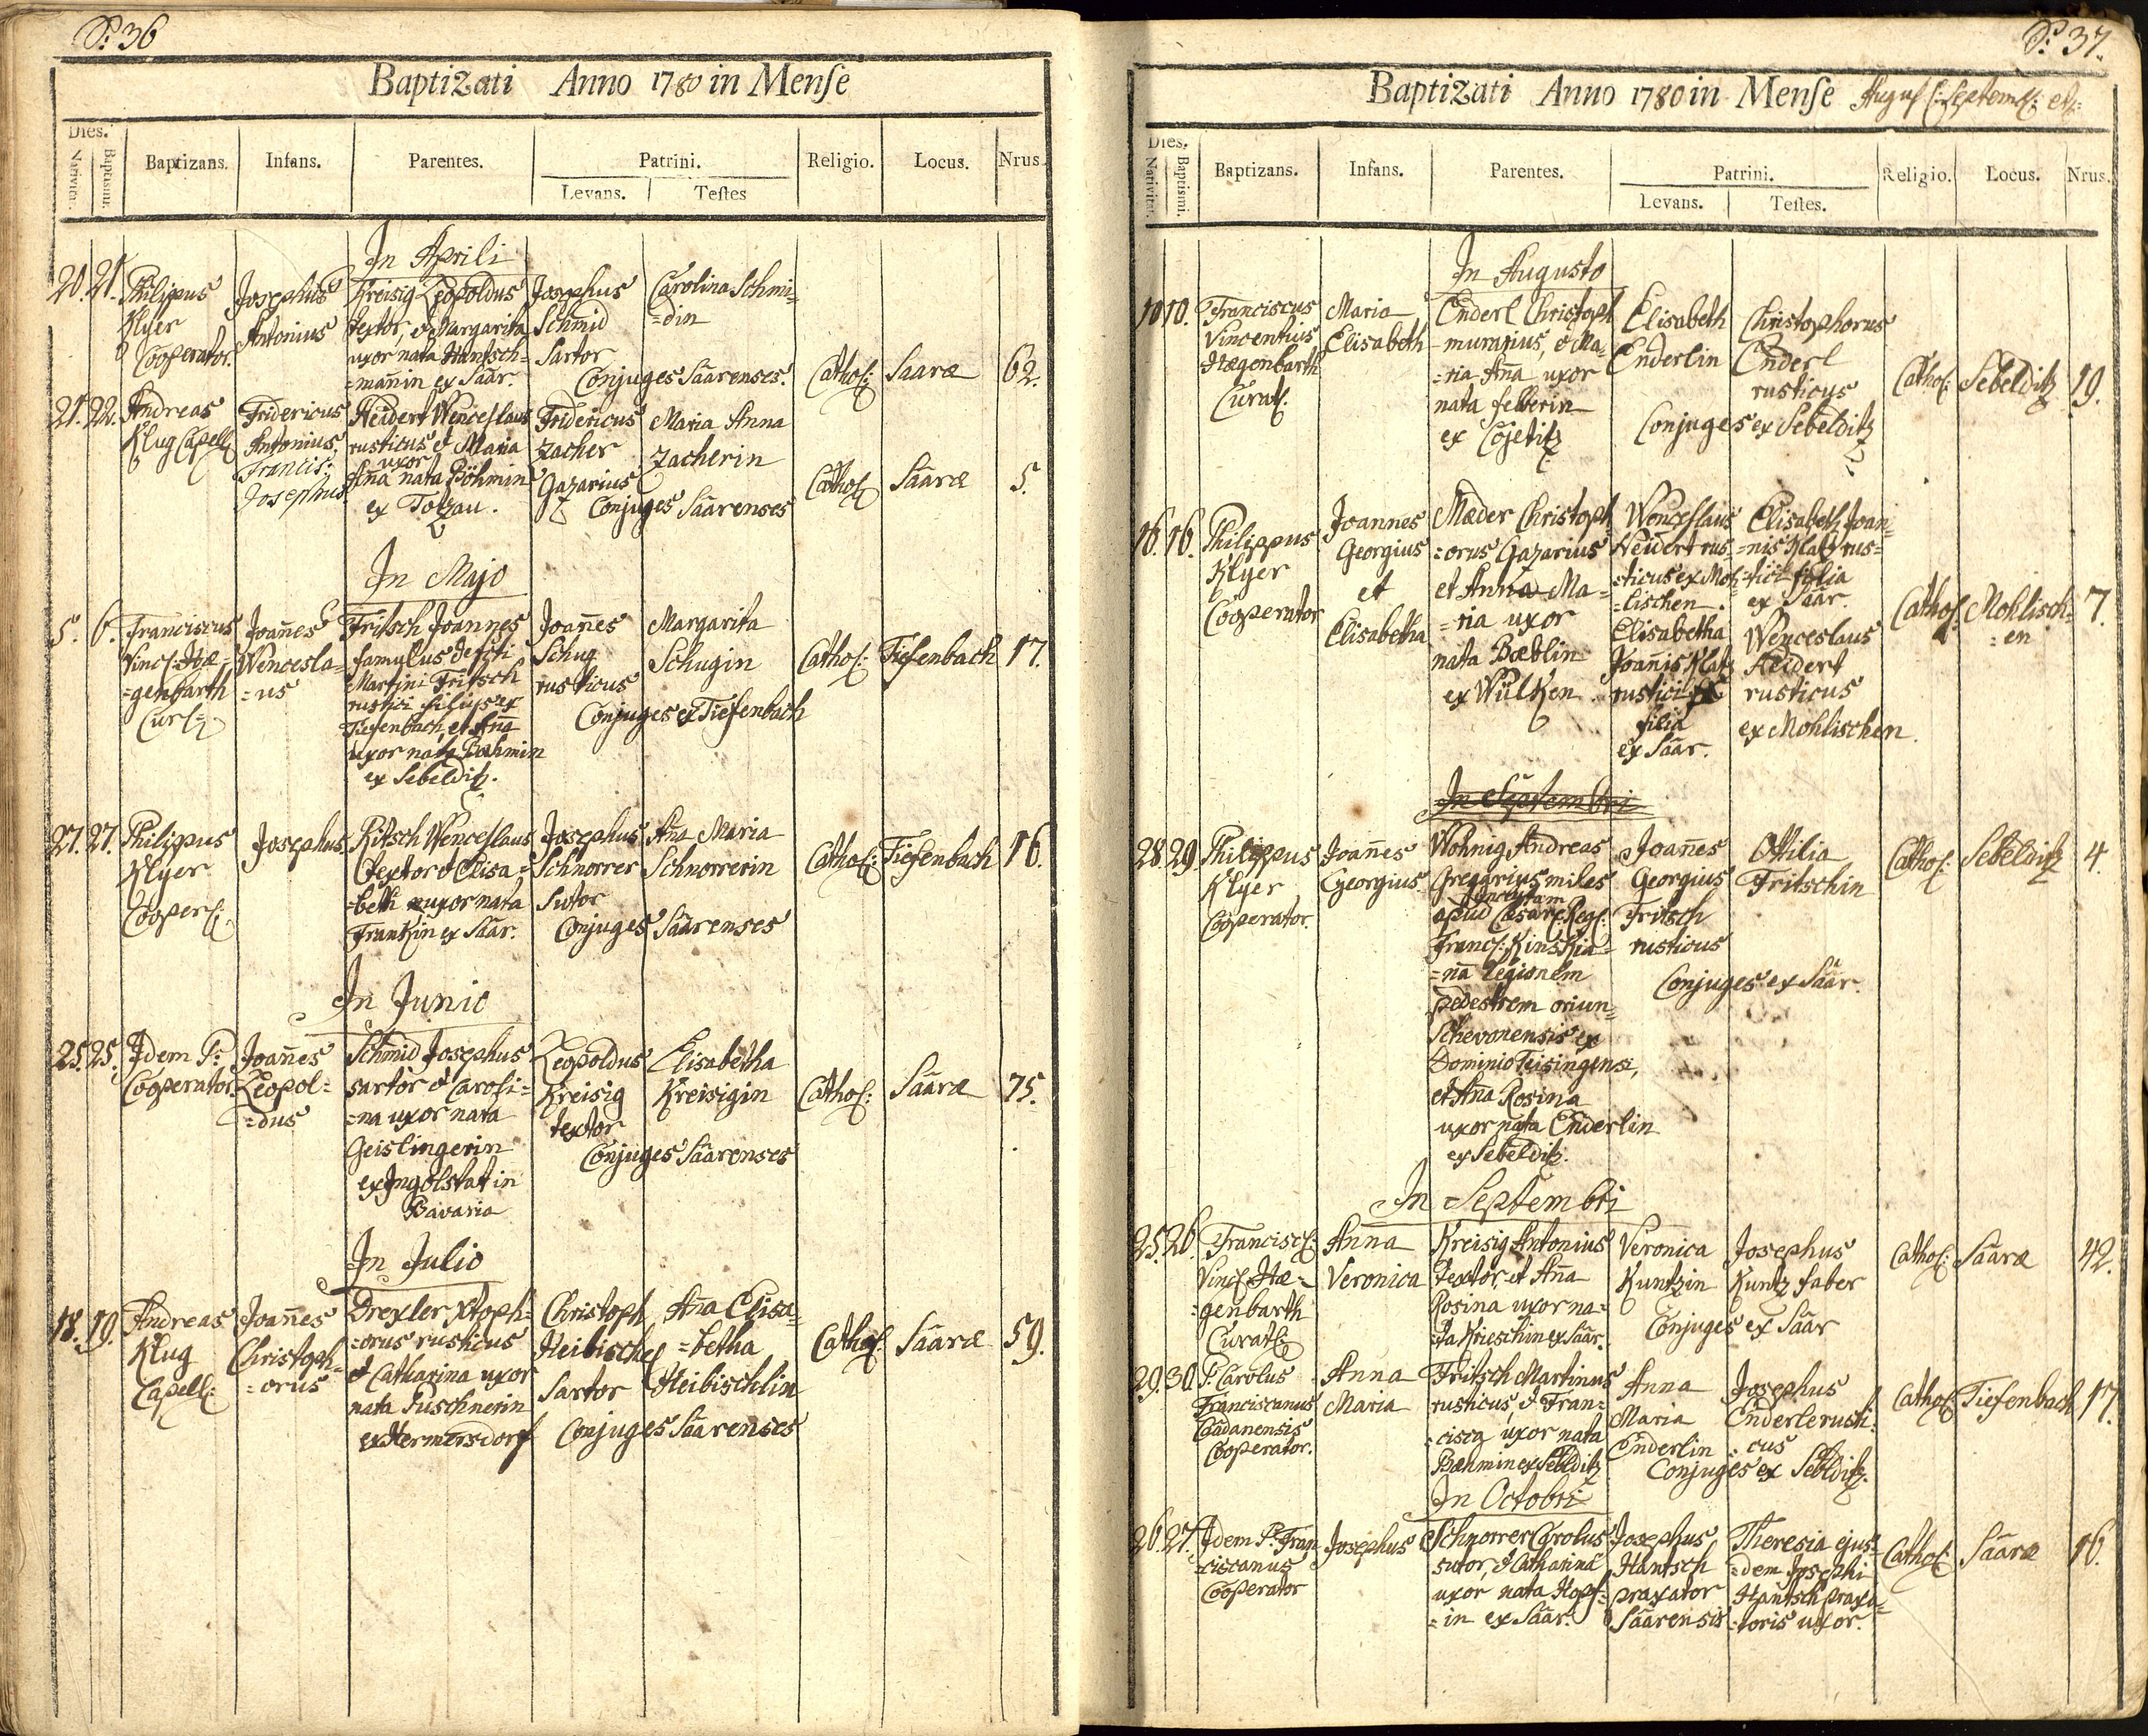 P: 36
Baptizati Anno 1780 in Menſe
Dies.
Nativitat.
Baptismi.
Baptizans.
Infans.
Parentes.
Patrini.
Levans.
Teſtes
Religio.
Locus.
Nrus.
In Aprili
20. 21.
Philipus
Klyer
Cooperator.
Josephus
Antonius
Kreisig Leopoldus
textor, & Margarita
uxor nata Hantsch=
=mañin ex Säar.
Josephus
Schmid
Sartor
Carolina Schmi=
=din
Conjuges Säarenses.
Cathol:
Saaræ
62.
21. 22.
Andreas
Klug Capell:
Fridericus
Antonius
Francis:
Josephus
Heidert Wenceslaus
rusticus & Maria
uxor
Aña nata Böhmin
ex Totzau.
Fridericus
Zacher
Gazarius
Maria Anna
Zacherin
Conjuges Säarenses
Cathol:
Säaræ
5.
In Majo
5. 6.
Franciscus
Vinc: Hæ=
=genbarth
Cur:
Joañes
Wencesla=
=us
Fritsch Joannes
famulus defcti
Martini Fritsch
rustici filius ex
Tiefenbach, et Aña
uxor nata Bæhmin
ex Sebelditz.
Joañes
Schug
rusticus
Margarita
Schugin
Conjuges ex Tiefenbach
Cathol:
Tiefenbach
17.
27. 27.
Philippus
Klyer
Cooper:
Josephus
Ritsch Wenceslaus
textor & Elisa=
=beth uxor nata
Frankin ex Säar.
Josephus
Schnorrer
Sutor
Aña Maria
Schnorrerin
Conjuges Säarenses
Cathol:
Tiefenbach
16.
In Junio
25. 25.
Idem P:
Cooperator.
Joañes
Leopol=
=dus
Schmid Josephus
sartor & Caroli=
=na uxor nata
Geislingerin
ex Ingolstat in
Bavaria
Leopoldus
Kreisig
textor
Elisabetha
Kreisigin
Conjuges Säarenses
Cathol:
Säaræ
75.
In Julio
18. 19.
Andreas
Klug
Capell:
Joañes
Christoph=
=orus
Drexler Xtoph=
=orus rusticus
& Catharina uxor
nata Puschnerin
ex Hermersdorf
Christoph
Heibischel
Sartor
Aña Elisa=
=betha
Heibischlin
Conjuges Säarenses
Cathol:
Säaræ
59.
P: 37.
Baptizati Anno 1780 in Menſe Augus: Septem: et:
Dies.
Nativitat.
Baptismi.
Baptizans.
Infans.
Parentes.
Patrini.
Levans.
Teſtes.
Religio.
Locus.
Nrus.
In Augusto
10 10.
Franciscus
Vincentius
Hægenbarth
Curat:
Maria
Elisabeth
Enderl Christoph
murarius, & Ma=
=ria Aña uxor
nata felberin
ex Cojetitz
Elisabeth
Enderlin
Christophorus
Enderl
rusticus
Conjuges ex Sebelditz
Cathol:
Sebelditz
19.
16. 16.
Philippus
Klyer
Cooperator
Joannes
Georgius
et
Elisabetha
Mæder Christoph
=orus Gazarius
et Anna Ma=
=ria uxor
nata Bæblin
ex Wülken
Wenceslaus
Heidert rus=
=ticus ex Moh=
=lischen.
Elisabetha
Joañis Klatz
rustici
filia
ex Säar.
Elisabeth Joan=
=nis Klatz rus=
=tici filia
ex Säar.
Wenceslaus
Heidert
rusticus
ex Mohlischen
Cathol:
Mohlisch=
=en
7.
In Septembri
28 29.
Philippus
Klyer
Cooperator.
Joañes
Georgius
Wohnig Andreas
Gregarius miles
apud Cæsar: Reg:
Franc: Kinskia=
=na Legionem
pedestrem oriun=
Schevonensis ex
Dominio Teisingensi,
et Aña Rosina
uxor nata Enderlin
ex Sebelditz.
Joañes
Georgius
Fritsch
rusticus
Ottilia
Fritschin
Conjuges ex Säar.
Cathol:
Sebelditz
4.
In Septembri
25. 26.
Francisc:
Vinc: Hæ=
=genbarth
Curat:
Anna
Veronica
Kreisig Antonius
textor, et Aña
Rosina uxor na=
=ta Krieschin ex Säar.
Veronica
Kuntzin
Josephus
Kuntz faber
Conjuges ex Säar
Cathol:
Säaræ
42.
29. 30.
P: Carolus
Franciscanus
Cadanensis
Cooperator.
Anna
Maria
Fritsch Martinus
rusticus, & Fran=
=cisca uxor nata
Bæhmin ex Sebelditz
Anna
Maria
Enderlin
Josephus
Enderle rusti=
=cus
Conjuges ex Sebelditz.
Cathol:
Tiefenbach
17.
In Octobri
26. 27.
Idem P: Fran
=ciscanus
Cooperator
Josephus
Schnorrer Carolus
sutor, & Catharina
uxor nata Hopf=
=in ex Säar.
Josephus
Hantsch
praxator
Säarensis
Theresia ejus=
=dem Josephi
Hantsch praxa=
=toris uxor.
Cathol:
Säaræ
16.